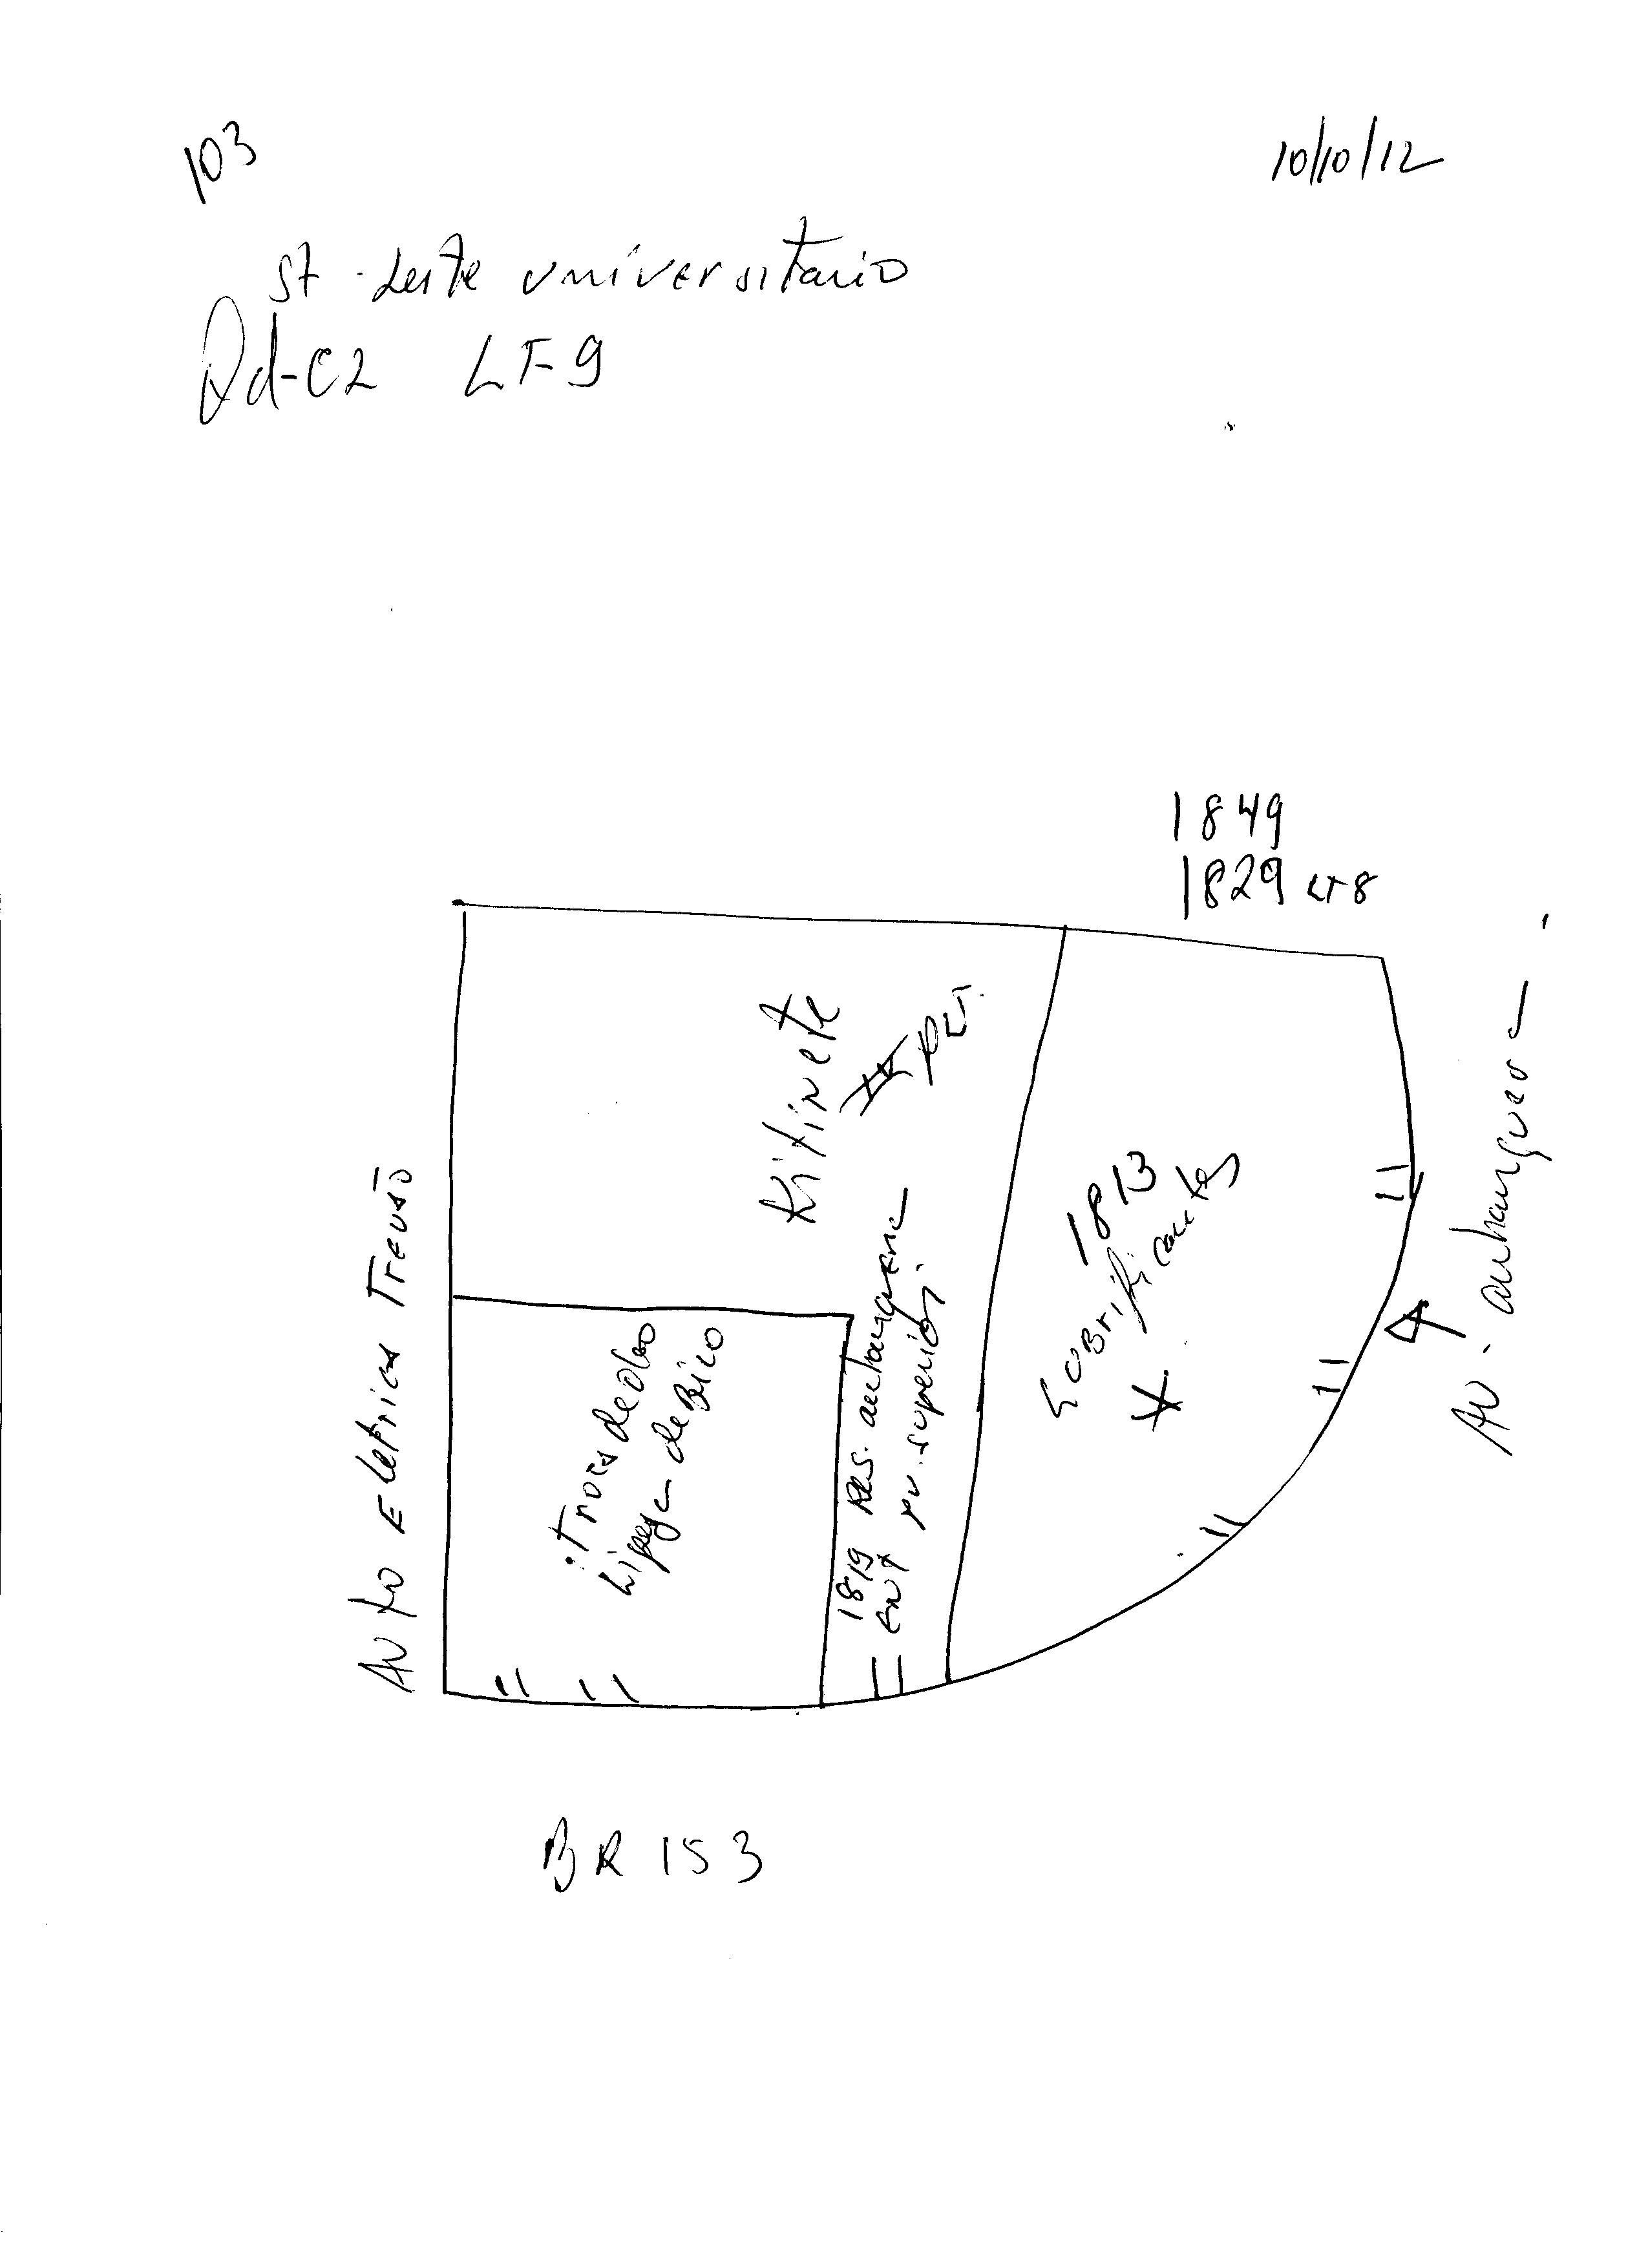 103
10/10/12
St. Leste universitario
Qd-C2 LT-9
1849
1829 LT8
Kitinete
Auto Eletrica Trevão
Troca de oleo
Lipeza de Bico
1819 Res. anhanguera
Ent pv. superior
1813
Lubrificantes
Av. anhanguera
BR 153